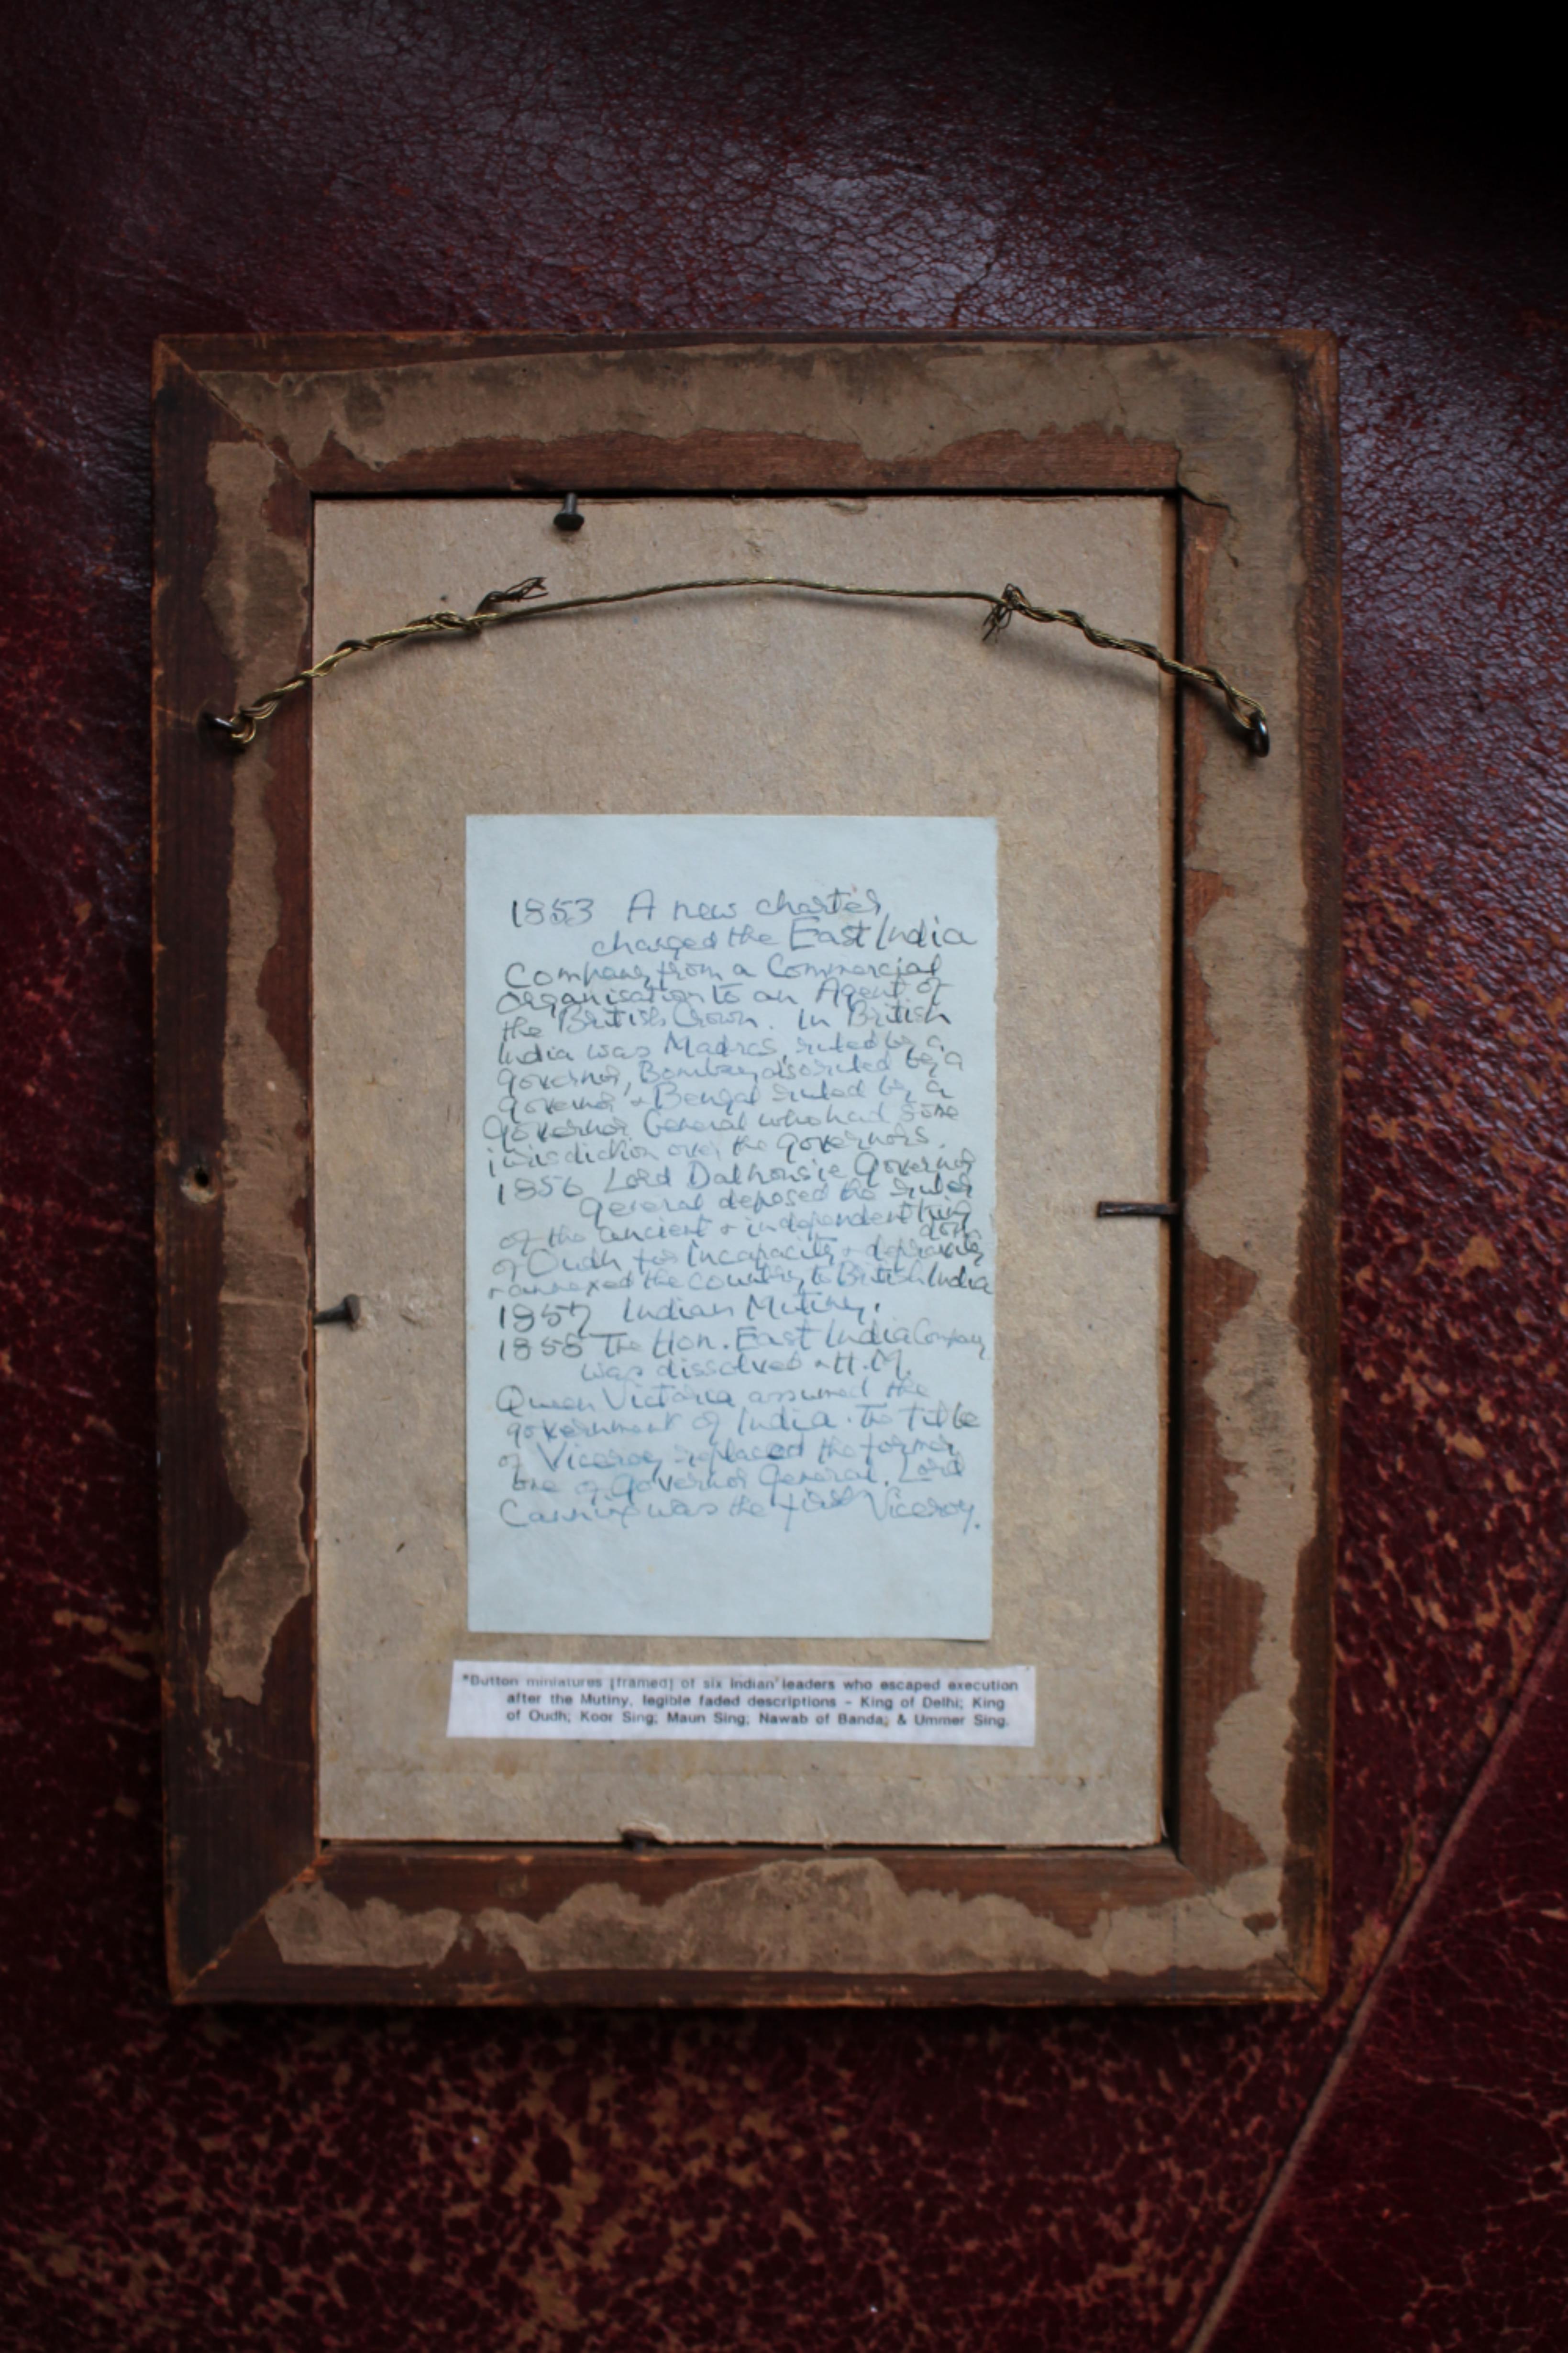 1853 A new charter
changed the East India
Company from a Commercial
Organisation to an Agent of
the British Crown. In British
India was Madras, ruled by a
governor, Bombay also ruled by a
governor & Bengal ruled by a
Governor General who had some
jurisdiction over the governors.
1856 Lord Dalhousie Governor
General deposed the ruler
of the ancient & independent king
dom
of Oudh for Incapacity & depravity
& annexed the country to British India
1857 Indian Mutiny.
1858 The Hon. East India Company
was dissolved & H.M.
Queen Victoria assumed the
government of India. The title
of Viceroy replaced the former
one of Governor General. Lord
Canning was the first Viceroy.
"Button miniatures [framed] of six Indian leaders who escaped execution
after the Mutiny, legible faded descriptions - King of Delhi; King
of Oudh; Koor Sing; Maun Sing; Nawab of Banda; & Ummer Sing.